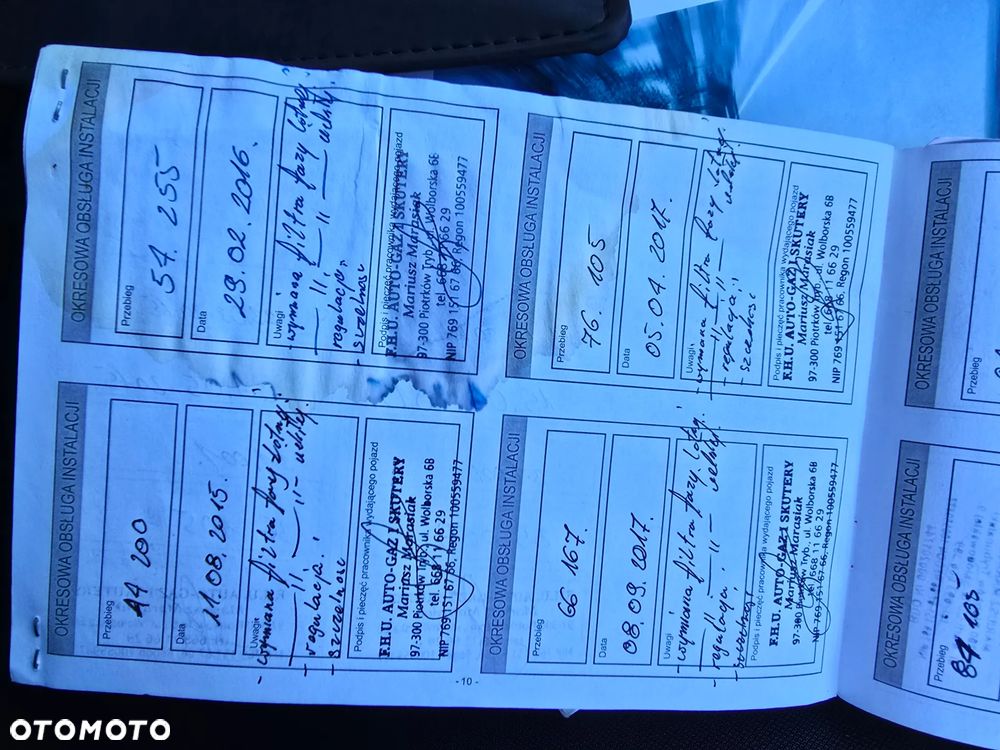 OKRESOWA OBSŁUGA INSTALACJI
Przebieg
44 200
Data
11.08.2015.
Uwagi
- wymiana filtra fazy lotnej
- -"- -"- ciekłej.
- regulacja
- szczelność
Podpis i pieczęć pracownika wydającego pojazd
F.H.U. AUTO-GAZ I SKUTERY
Mariusz Marasiak
97-300 Piotrków Tryb., ul. Wolborska 6B
tel. 668 11 66 29
NIP 769 151 67 66, Regon 100559477
OKRESOWA OBSŁUGA INSTALACJI
Przebieg
54 255
Data
29.02.2016.
Uwagi
- wymiana filtra fazy lotnej
-"- -"- ciekłej.
regulacja
szczelność
Podpis i pieczęć pracownika wydającego pojazd
F.H.U. AUTO-GAZ I SKUTERY
Mariusz Marasiak
97-300 Piotrków Tryb., ul. Wolborska 6B
tel. 668 11 66 29
NIP 769 151 67 66, Regon 100559477
OKRESOWA OBSŁUGA INSTALACJI
Przebieg
66 167.
Data
08.09.2017.
Uwagi
- wymiana filtra fazy lotnej
-"- -"- ciekłej
- regulacja
- szczelność
Podpis i pieczęć pracownika wydającego pojazd
F.H.U. AUTO-GAZ I SKUTERY
Mariusz Marasiak
97-300 Piotrków Tryb., ul. Wolborska 6B
tel. 668 11 66 29
NIP 769 151 67 66, Regon 100559477
OKRESOWA OBSŁUGA INSTALACJI
Przebieg
76. 105
Data
05.04.2017.
Uwagi
- wymiana filtra fazy lotnej.
-"- -"- ciekłej.
- regulacja
- szczelność
Podpis i pieczęć pracownika wydającego pojazd
F.H.U. AUTO-GAZ I SKUTERY
Mariusz Marasiak
97-300 Piotrków Tryb., ul. Wolborska 6B
tel. 668 11 66 29
NIP 769 151 67 66, Regon 100559477
- 10 -
OKRESOWA OBSŁUGA INSTALACJI
Przebieg
84 105
OKRESOWA OBSŁUGA INSTALACJI
Przebieg
OTOMOTO